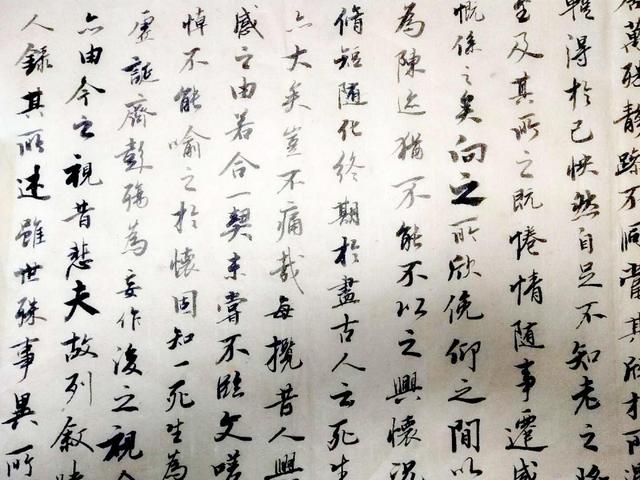 萬殊靜躁不同當其欣於所遇
暫得於己快然自足不知老之將
至及其所之既惓情隨事遷感
慨係之矣向之所欣俛仰之間以
為陳迹猶不能不以之興懷況
脩短隨化終期於盡古人云死生
亦大矣豈不痛哉每攬昔人興
感之由若合一契未嘗不臨文嗟
悼不能喻之於懷固知一死生為
虛誕齊彭殤為妄作後之視今
亦由今之視昔悲夫故列敘時
人錄其所述雖世殊事異所